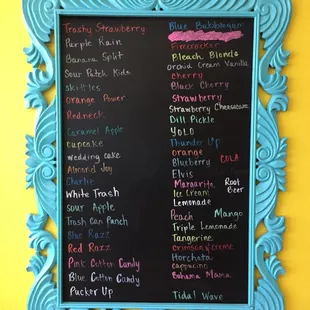 Trashy Strawberry
Purple Rain
Banana Split
Sour Patch Kids
skittles
Orange Power
Redneck
Caramel Apple
Cupcake
wedding cake
Almond Joy
Charlie
White Trash
Sour Apple
Trash Can Punch
Blue Razz
Red Razz
Pink Cotton Candy
Blue Cotton Candy
Pucker Up
Blue Bubblegum
Firecracker
Bleach Blonde
Orchid Cream Vanilla
cherry
Black Cherry
Strawberry
Strawberry Cheesecake
Dill Pickle
YOLO
Thunder Up
orange
Blueberry COLA
Elvis
Margarita Root
Ice Cream Beer
Lemonade
Peach Mango
Triple Lemonade
Tangerine
Crimson & Creme
Horchata
cappucino
Bahama Mama
Tidal Wave